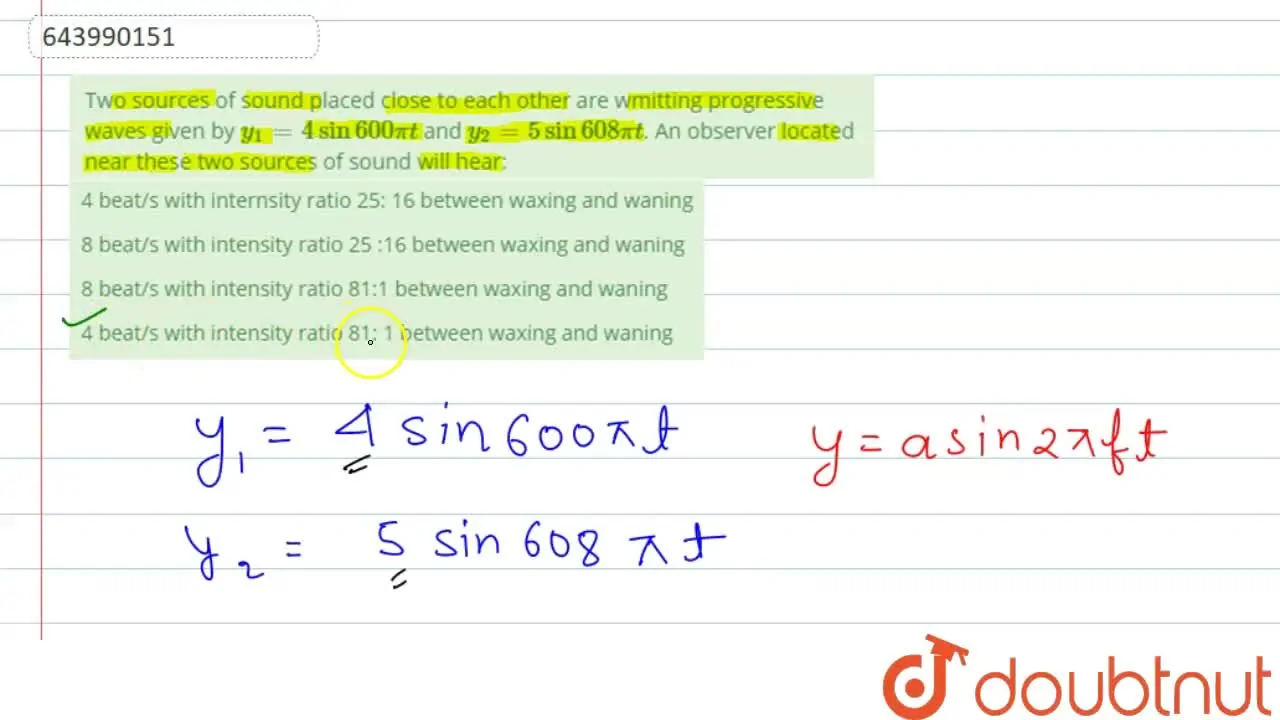 643990151
Two sources of sound placed close to each other are wmitting progressive
waves given by y₁ = 4 sin 600πt and y₂ = 5 sin 608πt. An observer located
near these two sources of sound will hear:
4 beat/s with internsity ratio 25: 16 between waxing and waning
8 beat/s with intensity ratio 25 :16 between waxing and waning
8 beat/s with intensity ratio 81:1 between waxing and waning
4 beat/s with intensity ratio 81: 1 between waxing and waning
y₁ = 4 sin 600πt
y = a sin 2πft
y₂ = 5 sin 608πt
doubtnut